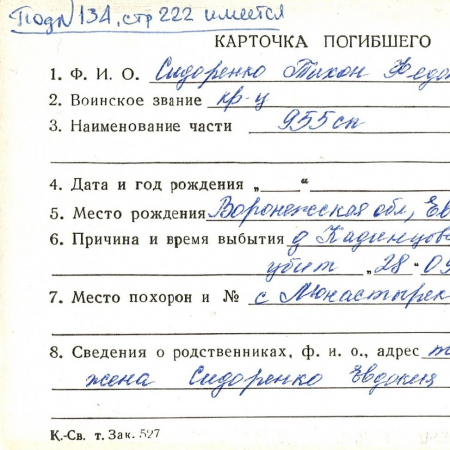 Под № 134, стр 222 имеется
КАРТОЧКА ПОГИБШЕГО
1. Ф. И. О. Сидоренко Тихон Федо
2. Воинское звание кр-ц
3. Наименование части 955 сп
4. Дата и год рождения „ “
5. Место рождения Воронежская обл, Ев
6. Причина и время выбытия д Кадинцово
убит „28" 09
7. Место похорон и № с Монастырек
8. Сведения о родственниках, ф. и о., адрес т
жена Сидоренко Евдокия
К.-Св. т. Зак. 527